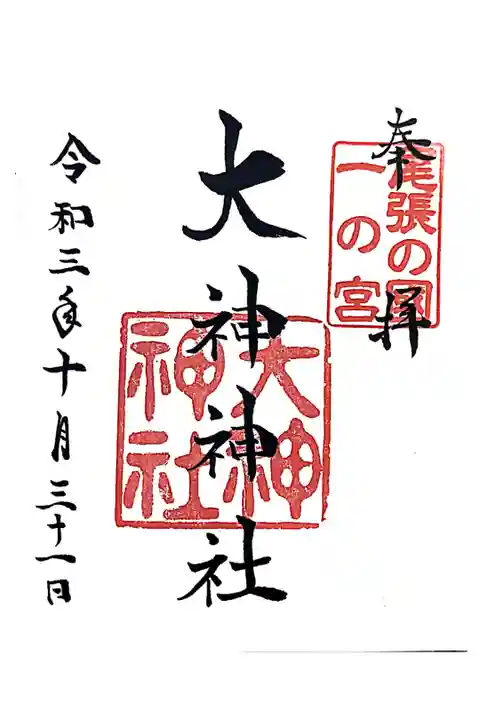 奉拝
尾張の国
一の宮
大神神社
大神
神社
令和三年十月三十一日